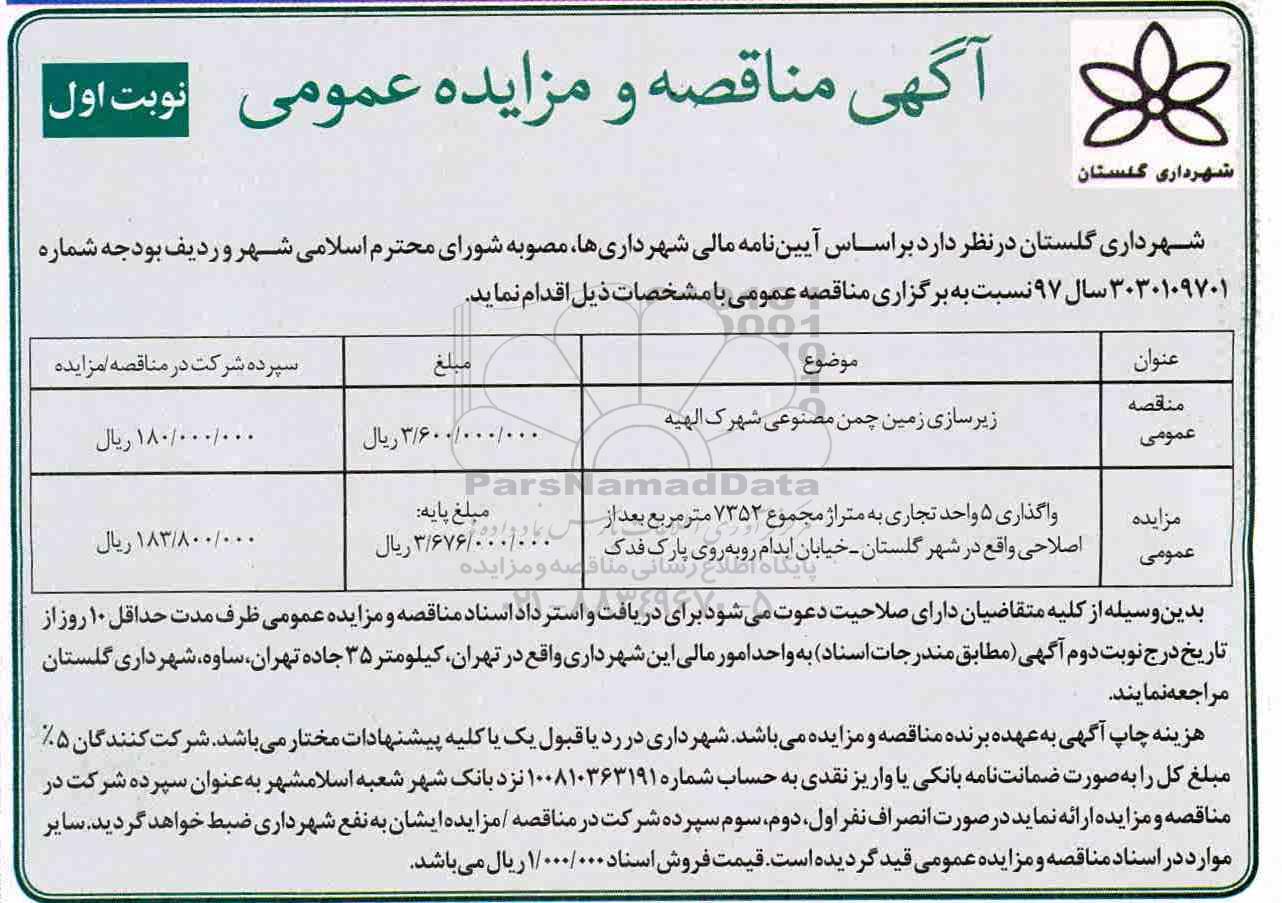 شهرداری گلستان
آگهی مناقصه و مزایده عمومی
نوبت اول
شهرداری گلستان در نظر دارد براساس آیین‌نامه مالی شهرداری‌ها، مصوبه شورای محترم اسلامی شهر و ردیف بودجه شماره
۳۰۳۰۱۰۹۷۰۱ سال ۹۷ نسبت به برگزاری مناقصه عمومی با مشخصات ذیل اقدام نماید.
عنوان موضوع مبلغ سپرده شرکت در مناقصه/مزایده
مناقصه عمومی زیرسازی زمین چمن مصنوعی شهرک الهیه ۳/۶۰۰/۰۰۰/۰۰۰ ریال ۱۸۰/۰۰۰/۰۰۰ ریال
مزایده عمومی واگذاری ۵ واحد تجاری به متراژ مجموع ۷۳۵۲ مترمربع بعد از مبلغ پایه:
اصلاحی واقع در شهر گلستان ـ خیابان ایدام روبه‌روی پارک فدک ۳/۶۷۶/۰۰۰/۰۰۰ ریال ۱۸۳/۸۰۰/۰۰۰ ریال
ParsNamadData
پایگاه اطلاع رسانی مناقصه و مزایده
۰۲۱-۸۸۳۴۹۶۷۰-۵
بدین‌وسیله از کلیه متقاضیان دارای صلاحیت دعوت می‌شود برای دریافت و استرداد اسناد مناقصه و مزایده عمومی ظرف مدت حداقل ۱۰ روز از
تاریخ درج نوبت دوم آگهی (مطابق مندرجات اسناد) به واحد امور مالی این شهرداری واقع در تهران، کیلومتر ۳۵ جاده تهران، ساوه، شهرداری گلستان
مراجعه نمایند.
هزینه چاپ آگهی به عهده برنده مناقصه و مزایده می‌باشد. شهرداری در رد یا قبول یک یا کلیه پیشنهادات مختار می‌باشد. شرکت کنندگان ۵٪
مبلغ کل را به‌صورت ضمانت‌نامه بانکی یا واریز نقدی به حساب شماره ۱۰۰۸۱۰۳۶۳۱۹۱ نزد بانک شهر شعبه اسلامشهر به‌عنوان سپرده شرکت در
مناقصه و مزایده ارائه نماید در صورت انصراف نفر اول، دوم، سوم سپرده شرکت در مناقصه / مزایده ایشان به نفع شهرداری ضبط خواهد گردید. سایر
موارد در اسناد مناقصه و مزایده عمومی قید گردیده است. قیمت فروش اسناد ۱/۰۰۰/۰۰۰ ریال می‌باشد.